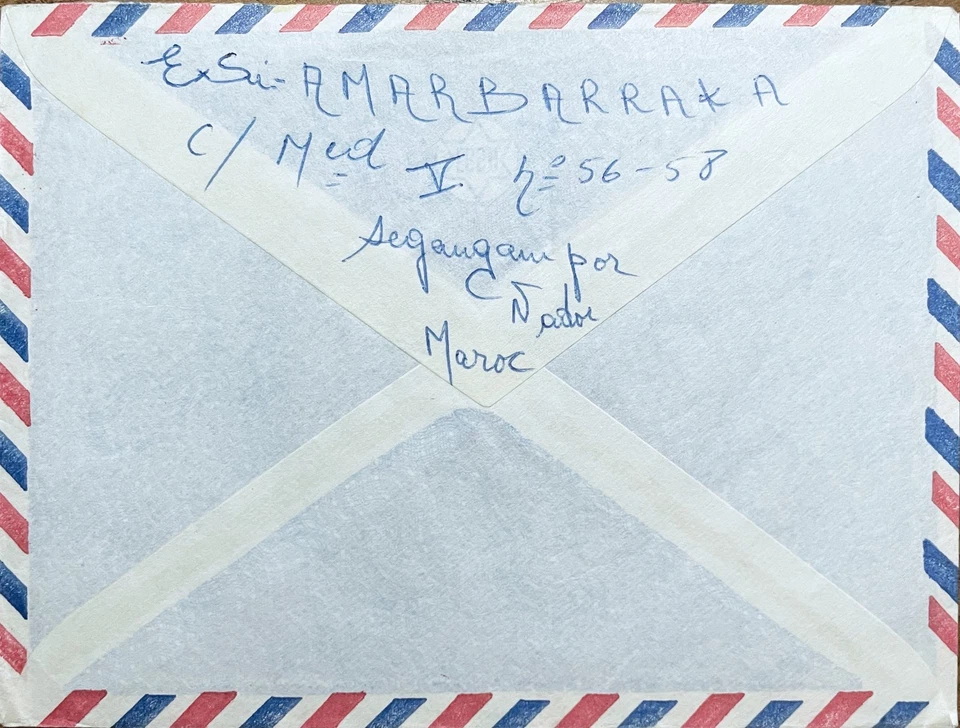 ExSu:- AMARBARRAKA
C/ Med V. nº 56-58
Segangam por
Nador
Maroc